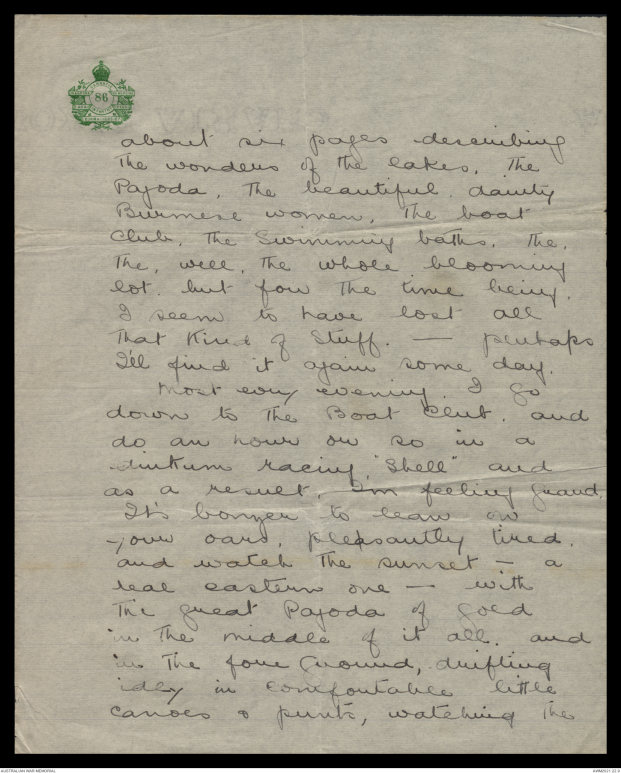 86
about six pages describing
the wonders of the lakes, the
Pagoda, the beautiful, dainty
Burmese women, the boat
club, the swimming baths, the,
the, well, the whole blooming
lot, but for the time being,
I seem to have lost all
that kind of stuff. — perhaps
I'll find it again some day.
Most every evening, I go
down to the Boat Club, and
do an hour or so in a
dinkum racing "shell" and
as a result, I'm feeling grand.
It's bonzer to lean on
your oars, pleasantly tired,
and watch the sunset – a
real eastern one — with
the great Pagoda of gold
in the middle of it all, and
in the fore ground, drifting
idly in comfortable little
canoes & punts, watching the
AUSTRALIAN WAR MEMORIAL